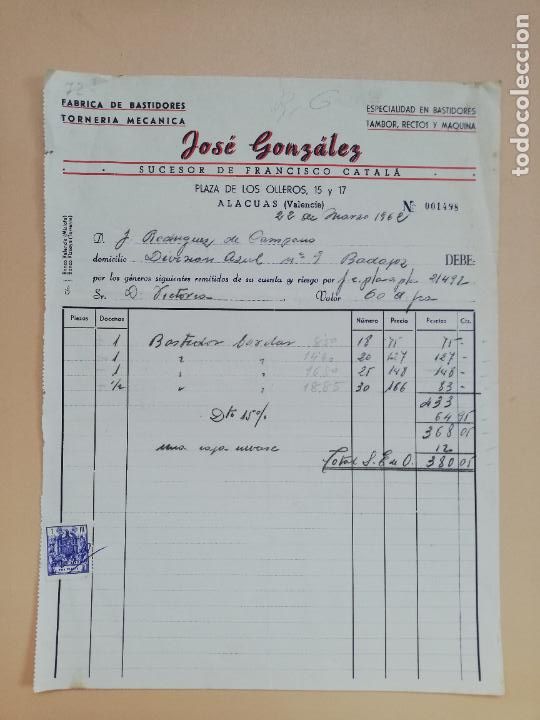 72
FABRICA DE BASTIDORES
TORNERIA MECANICA
ESPECIALIDAD EN BASTIDORES
TAMBOR, RECTOS Y MAQUINA
José González
SUCESOR DE FRANCISCO CATALÁ
PLAZA DE LOS OLLEROS, 15 y 17
ALACUAS (Valencia)
Nº 001498
22 de Marzo 1962
D. J. Rodriguez de Campano
domicilio Division Azul nº 9 Badajoz DEBE:
por los géneros siguientes remitidos de su cuenta y riesgo por f.c. 21492
Sr. D. Victoria Valor 60 d
Piezas Docenas Número Precio Pesetas Cts.
1 Bastidor bordar 18 75 75 -
1 " " 1460 20 127 127 -
1 " " 1680 25 148 148 -
1/2 " " 1885 30 166 83 -
433
Dto 15% 64 95
368 05
una caja envase 12
Total S. E. u O. 380 05
todocoleccion